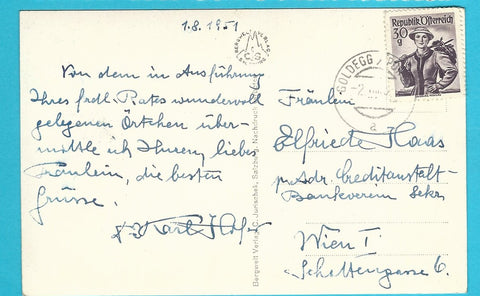 1.8.1951
Von dem in Ausführung
Ihres frdl. Rates wundervoll
gelegenen Örtchen über-
mittle ich Ihnen, liebes
Fräulein, die besten
Grüsse.
Karl Hofer
BERGWELT VERLAG
Bergwelt Verlag C. Jurischek, Salzburg, Nachdruck
Republik Österreich
30 g
GOLDEGG
2.
a
Fräulein
Elfriede Haas
p. Adr. Creditanstalt-
Bankverein Sekr.
Wien I
Schottengasse 6.